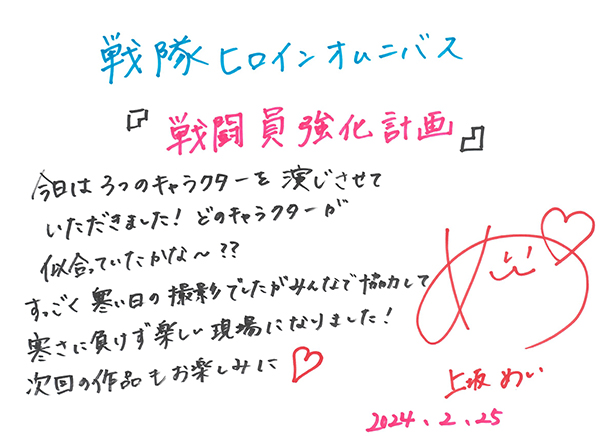 戦隊ヒロインオムニバス
『戦闘員強化計画』
今日は3つのキャラクターを演じさせて
いただきました！どのキャラクターが
似合っていたかな〜??
すっごく寒い日の撮影でしたがみんなで協力して
寒さに負けず楽しい現場になりました！
次回の作品もお楽しみに♡
めい♡
上坂めい
2024.2.25